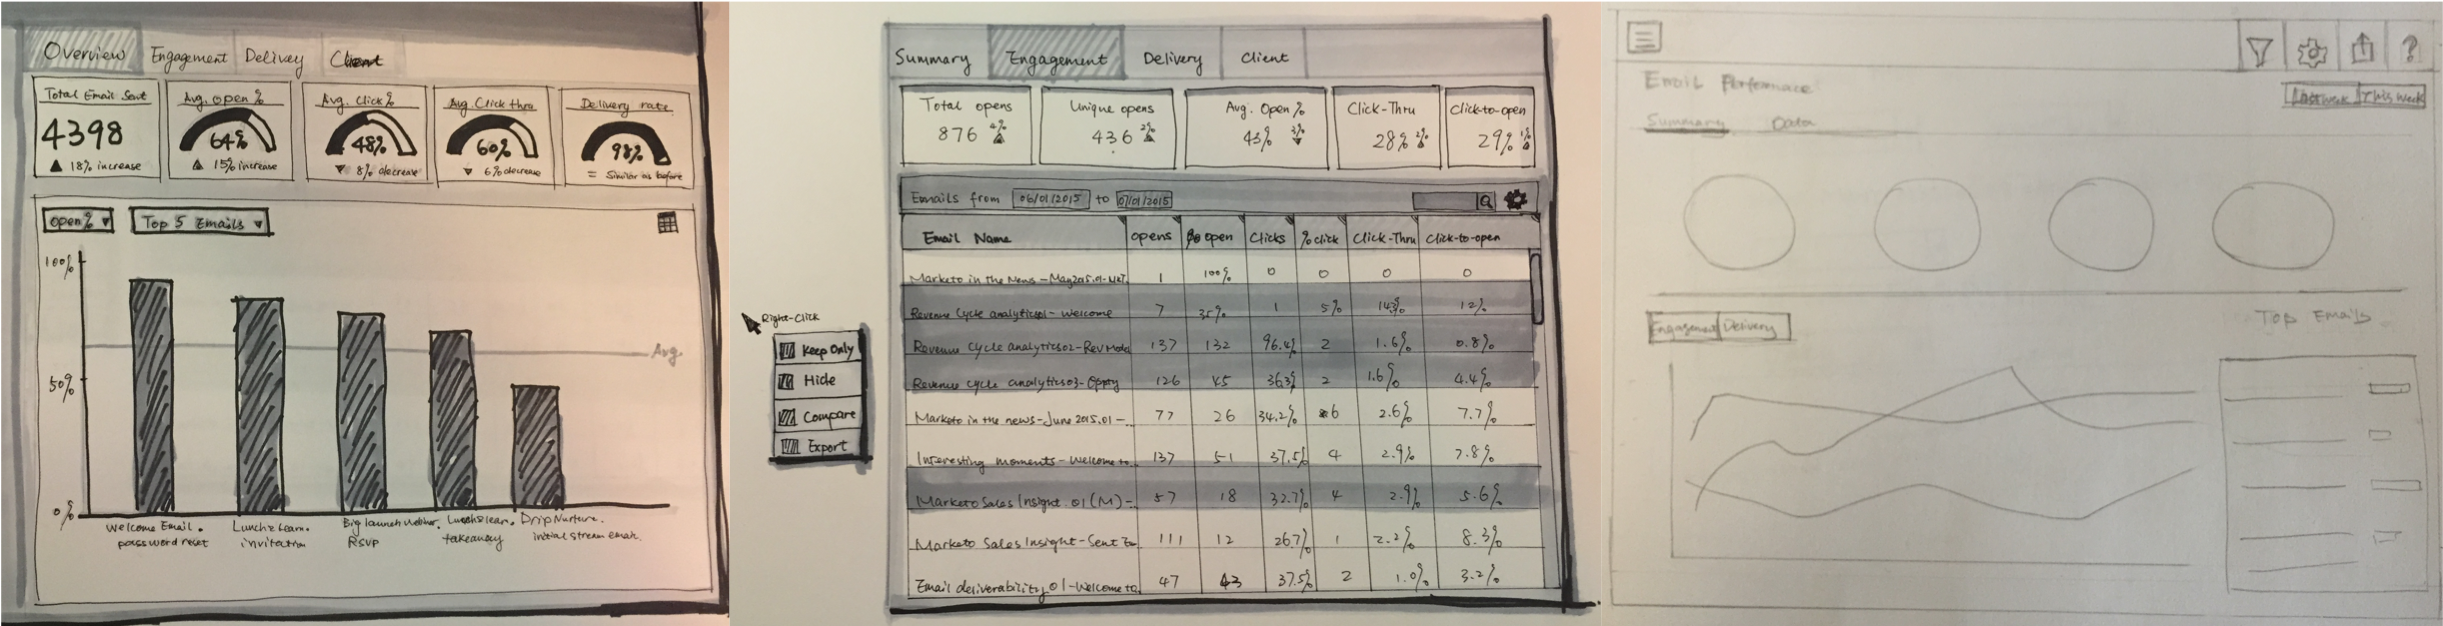 Overview Engagement Delivery Client
Total Email Sent
4398
▲ 18% increase
Avg. open %
64%
▲ 15% increase
Avg. click %
48%
▼ 8% decrease
Avg. Click thru
60%
▼ 6% decrease
Delivery rate
98%
= Similar as before
open% ▼ Top 5 Emails ▼
100%
Avg.
50%
0%
Welcome Email.
password reset
Lunch & Learn.
invitation
Big launch Webinar.
RSVP
Lunch & Learn.
takeaway
Drip Nurture.
initial stream email.
Summary Engagement Delivery Client
Total opens
876 4% ▲
Unique opens
436 2% ▲
Avg. Open %
43% 3% ▼
Click-Thru
28% 2% ▲
Click-to-open
29% 1% ▲
Emails from 06/01/2015 to 07/01/2015
Email Name opens % open Clicks % click Click-Thru Click-to-open
Marketo in the News - May2015.01-MKT. 1 100% 0 0 0 0
Revenue Cycle analytics01- Welcome 7 35% 1 5% 14.3% 12%
Revenue Cycle analytics02-Rev Model 137 132 96.4% 2 1.6% 0.8%
Revenue Cycle analytics03- 126 45 36.3% 2 1.6% 4.4%
Marketo in the news-June 2015.01 -.. 77 26 34.2% 6 2.6% 7.7%
Interesting moments - Welcome to 137 51 37.5% 4 2.9% 7.8%
Marketo Sales Insight .01 (M) -. 57 18 32.7% 4 2.9% 5.6%
Marketo Sales Insight - Sent 111 12 26.7% 1 2.2% 8.3%
Email deliverability 01 - Welcome to 47 43 37.5% 2 1.0% 3.2%
Right-Click
Keep Only
Hide
Compare
Export
?
Email Performance
Last week This Week
Summary Data
Engagement Delivery
Top Emails